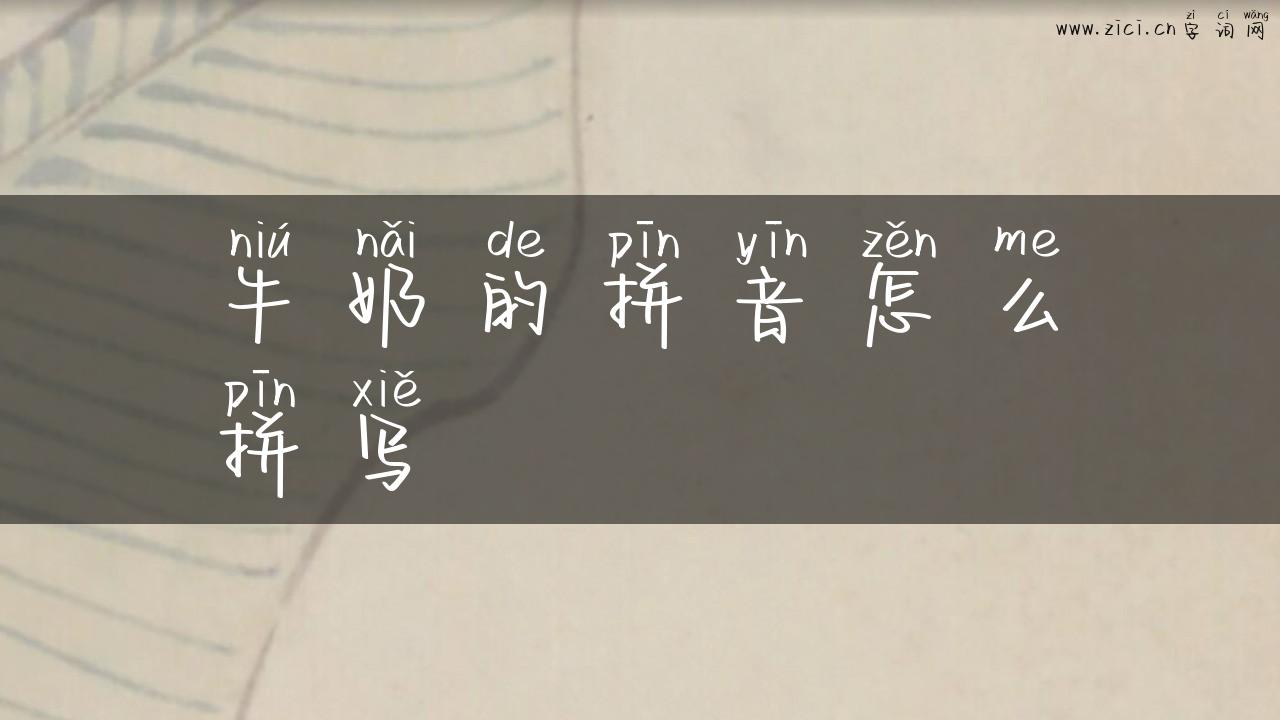 zì cí wǎng
www.zici.cn 字词网
niú nǎi de pīn yīn zěn me
牛奶的拼音怎么
pīn xiě
拼写